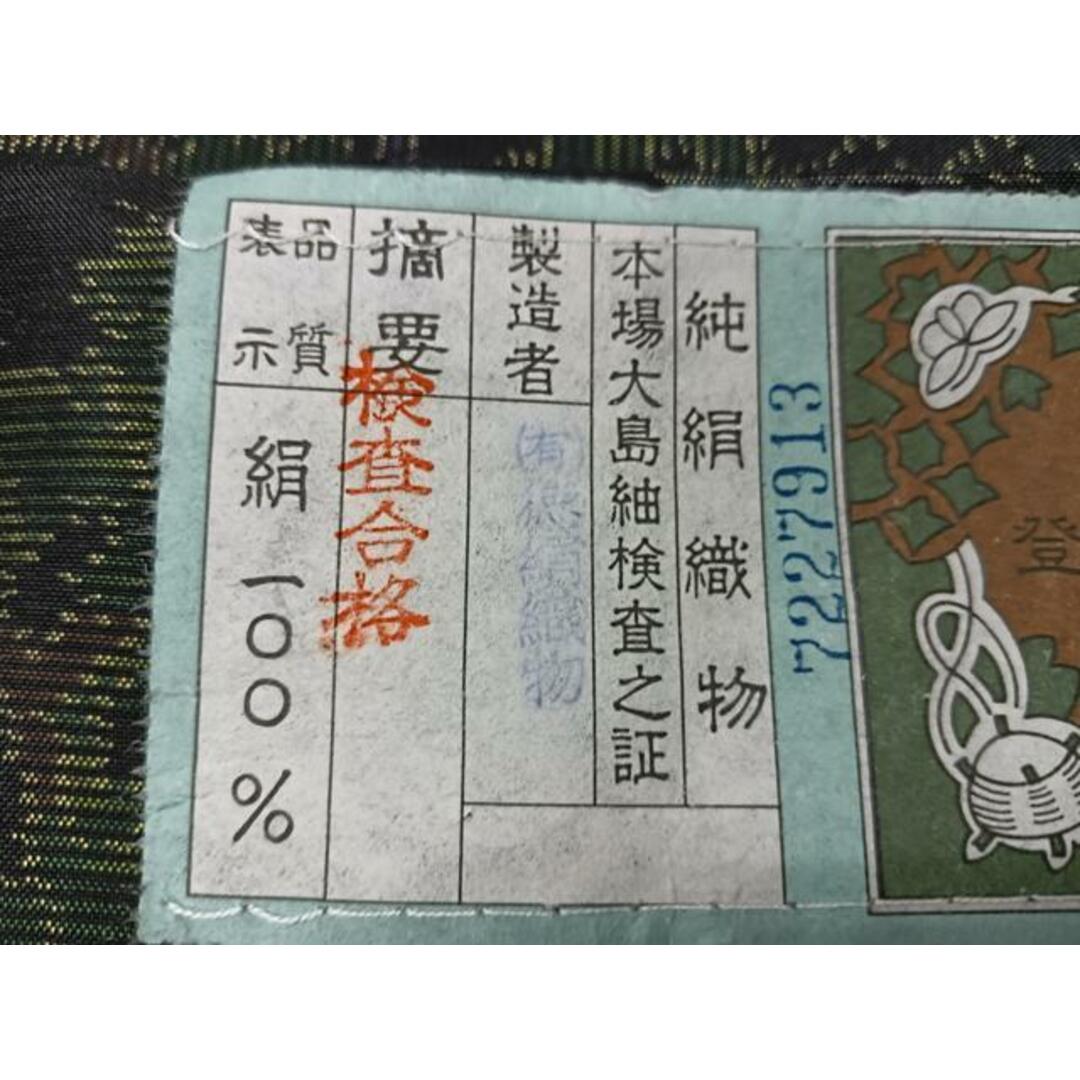 登
7227913
純絹織物
本場大島紬検査之証
製造者
㈲徳絹織物
摘要
検査合格
品質
表示
絹一〇〇%